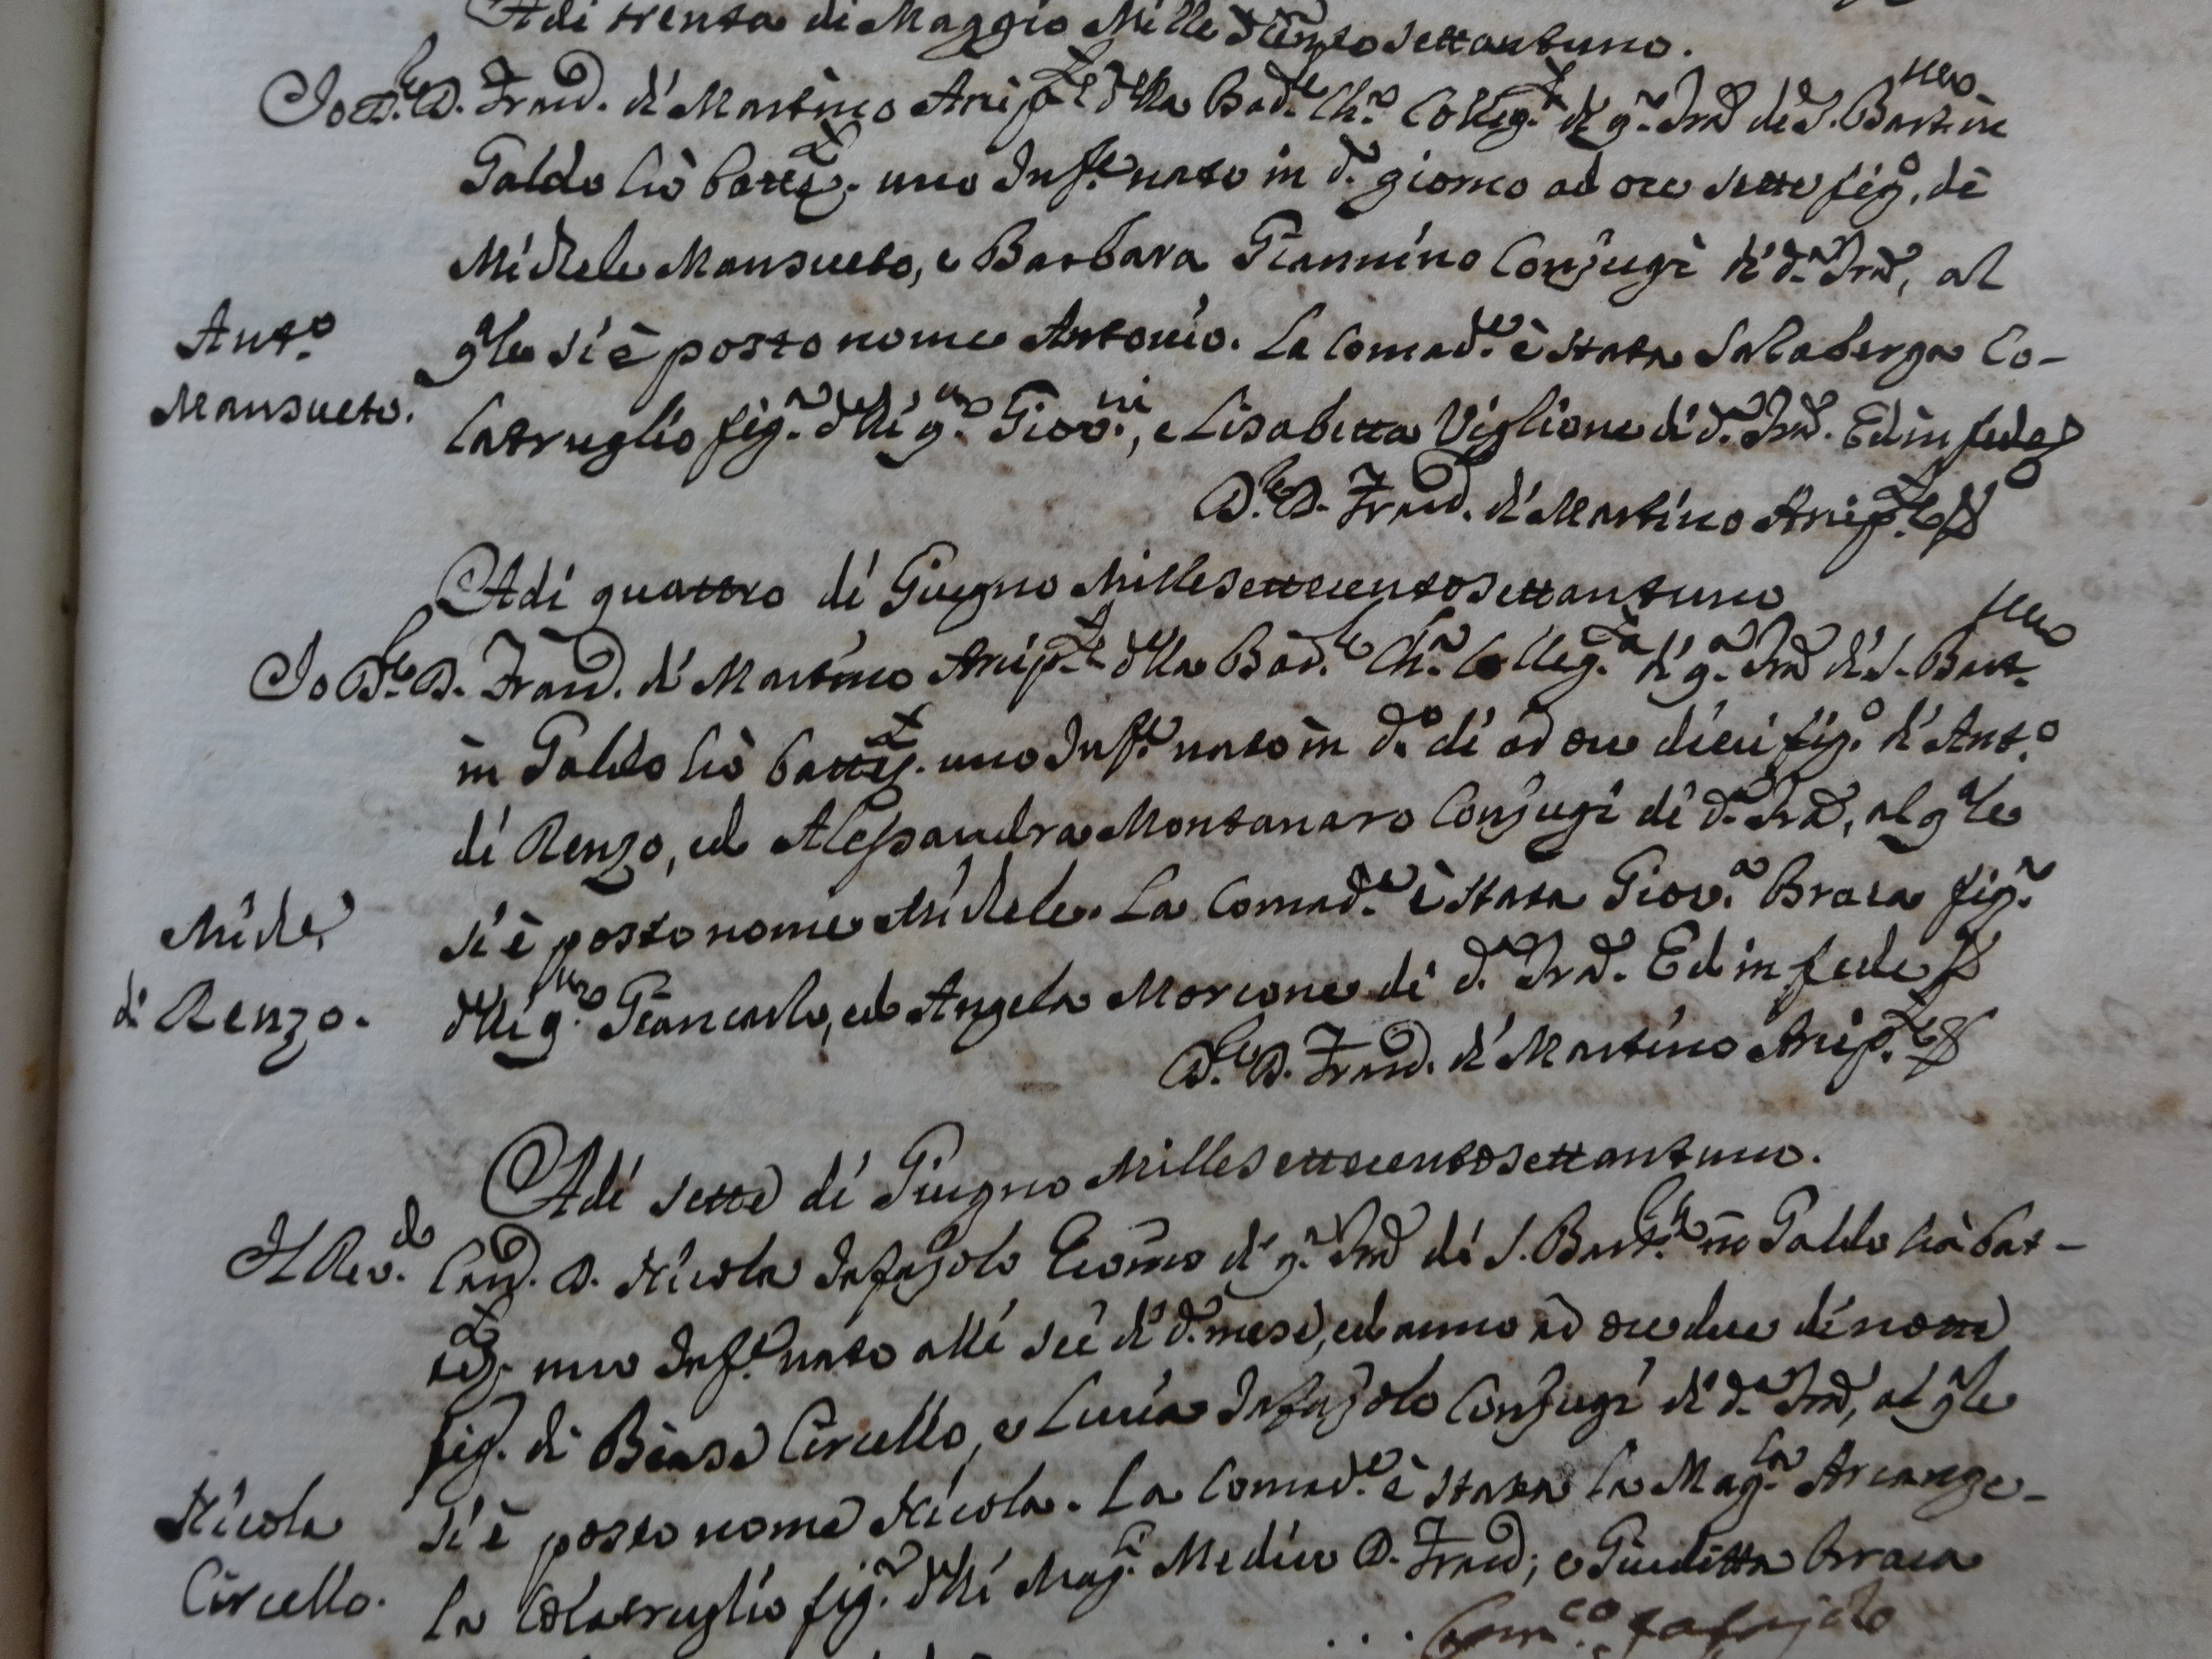 Adi trenta di Maggio Mille Settantuno.
Io D.r D. Fran.co di Martino Arcip.te della Bad.le Ch.a Colleg.ta di q.a Trã di S. Bart.meo in
Galdo hò battez.to uno Inf.te nato in d.o giorno ad ore sette fig.o di
Michele Mansueto, e Barbara Giannino Conjugi di d.a Trã, al
q.le si è posto nome Antonio. La Comad.e è stata Salaberga Co-
latruglio fig.a delli q.m Giov.ni, e Lisabetta Viglione di d.a Trã. Ed in fede
D.r D. Fran.co di Martino Arcip.te
Ant.o
Mansueto.
Adi quattro di Giugno Millesettecentosettantuno
Io D.r D. Fran.co di Martino Arcip.te della Bad.le Ch.a Colleg.ta di q.a Trã di S. Bart.meo
in Galdo hò battez.to uno Inf.te nato in d.o di ad ore dieci fig.o di Ant.o
di Renzo, ed Alessandra Montanaro Conjugi di d.a Trã, al q.le
si è posto nome Michele. La Comad.e è stata Giov.a Braca fig.a
delli q.m Giancarlo, ed Angela Morcone di d.a Trã. Ed in fede
D.r D. Fran.co di Martino Arcip.te
Michel
di Renzo.
Adi sette di Giugno Millesettecentosettantuno.
Il Rev.do Can.co D. Nicola Iafajolo di q.a Trã di S. Bart.meo in Galdo hà bat-
tez.to uno Inf.te nato alli sei di d.o mese, ed anno ad ore due di notte
fig. di Biase Circello, e Lucia Iafajolo Conjugi di d.a Trã, al q.le
si è posto nome Nicola. La Comad.e è stata la Mag.ca Arcange-
la Colatruglio fig.a delli Mag.ci Medico D. Fran.co, e Giuditta Braca
Nicola
Circello.
Iafajolo